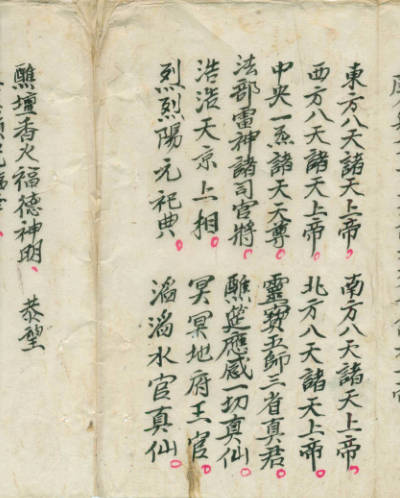 東方八天諸天上帝。南方八天諸天上帝。
西方八天諸天上帝。北方八天諸天上帝。
中央一炁諸天大尊。靈寶五師三省真君。
法部雷神諸司官將。醮筵應感一切真仙。
浩浩天京上相。冥冥地府王官。
烈烈陽元祀典。滔滔水官真仙。
醮壇香火福德神明、恭望